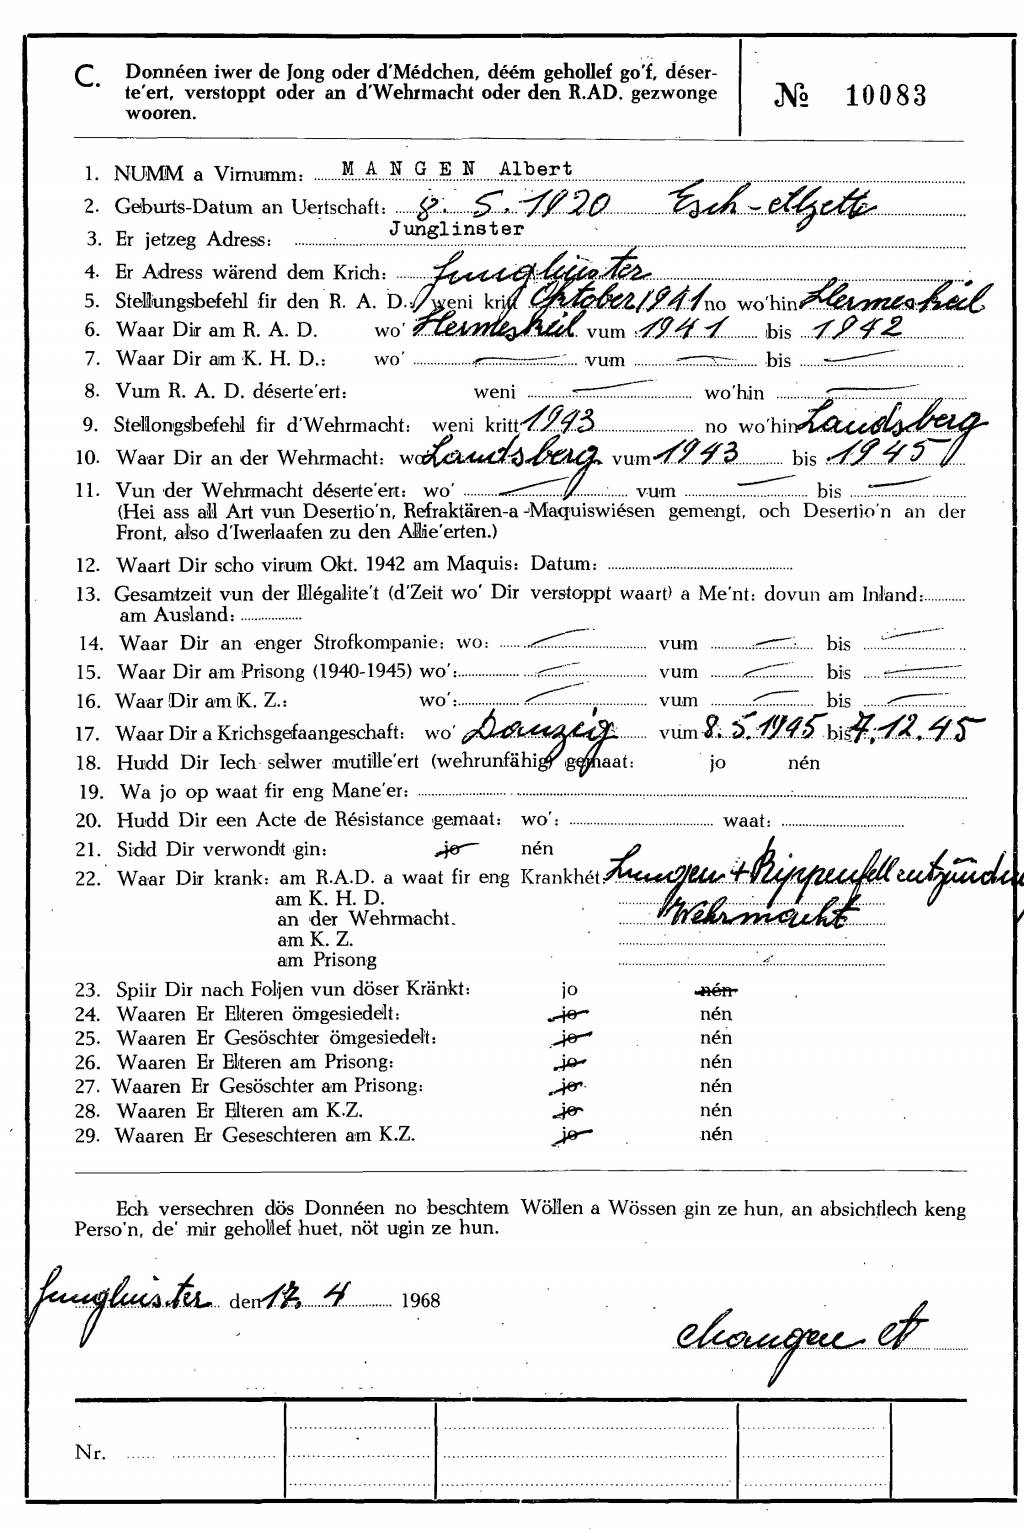 C. Donnéen iwer de Jong oder d'Médchen, déém gehollef go'f, déser-
te'ert, verstoppt oder an d'Wehrmacht oder den R.AD. gezwonge
wooren.
№ 10083
1. NUMM a Virnumm: MANGEN Albert
2. Geburts-Datum an Uertschaft: 8. 5. 1920 Esch-Alzette
3. Er jetzeg Adress: Junglinster
4. Er Adress wärend dem Krich: Junglinster
5. Stellungsbefehl fir den R. A. D.: weni kritt Oktober 1941 no wo'hin Hermeskeil
6. Waar Dir am R. A. D. wo' Hermeskeil vum 1941 bis 1942
7. Waar Dir am K. H. D.: wo' — vum — bis —
8. Vum R. A. D. déserte'ert: weni — wo'hin —
9. Stellongsbefehl fir d'Wehrmacht: weni kritt 1943 no wo'hin Landsberg
10. Waar Dir an der Wehrmacht: wo Landsberg vum 1943 bis 1945
11. Vun der Wehrmacht déserte'ert: wo' — vum — bis —
(Hei ass all Art vun Desertio'n, Refraktären-a-Maquiswiésen gemengt, och Desertio'n an der
Front, also d'Iwerlaafen zu den Allie'erten.)
12. Waart Dir scho virum Okt. 1942 am Maquis: Datum:
13. Gesamtzeit vun der Illégalite't (d'Zeit wo' Dir verstoppt waart) a Me'nt: dovun am Inland:
am Ausland:
14. Waar Dir an enger Strofkompanie: wo: — vum — bis —
15. Waar Dir am Prisong (1940-1945) wo': — vum — bis —
16. Waar Dir am K. Z.: wo': — vum — bis —
17. Waar Dir a Krichsgefaangeschaft: wo' Danzig vum 8. 5. 1945 bis 7. 12. 45
18. Hudd Dir Iech selwer mutille'ert (wehrunfähig) gemaat: jo nén
19. Wa jo op waat fir eng Mane'er:
20. Hudd Dir een Acte de Résistance gemaat: wo': waat:
21. Sidd Dir verwondt gin: jo nén
22. Waar Dir krank: am R.A.D. a waat fir eng Krankhét: Lungen + Rippenfellentzündung
am K. H. D.
an der Wehrmacht. Wehrmacht
am K. Z.
am Prisong
23. Spiir Dir nach Foljen vun döser Kränkt: jo nén
24. Waaren Er Elteren ömgesiedelt: jo nén
25. Waaren Er Gesöschter ömgesiedelt: jo nén
26. Waaren Er Elteren am Prisong: jo nén
27. Waaren Er Gesöschter am Prisong: jo nén
28. Waaren Er Elteren am K.Z. jo nén
29. Waaren Er Geseschteren am K.Z. jo nén
Ech versechren dös Donnéen no beschtem Wöllen a Wössen gin ze hun, an absichtlech keng
Perso'n, de' mir gehollef huet, nöt ugin ze hun.
Junglinster den 17. 4 1968
Mangen A
Nr.